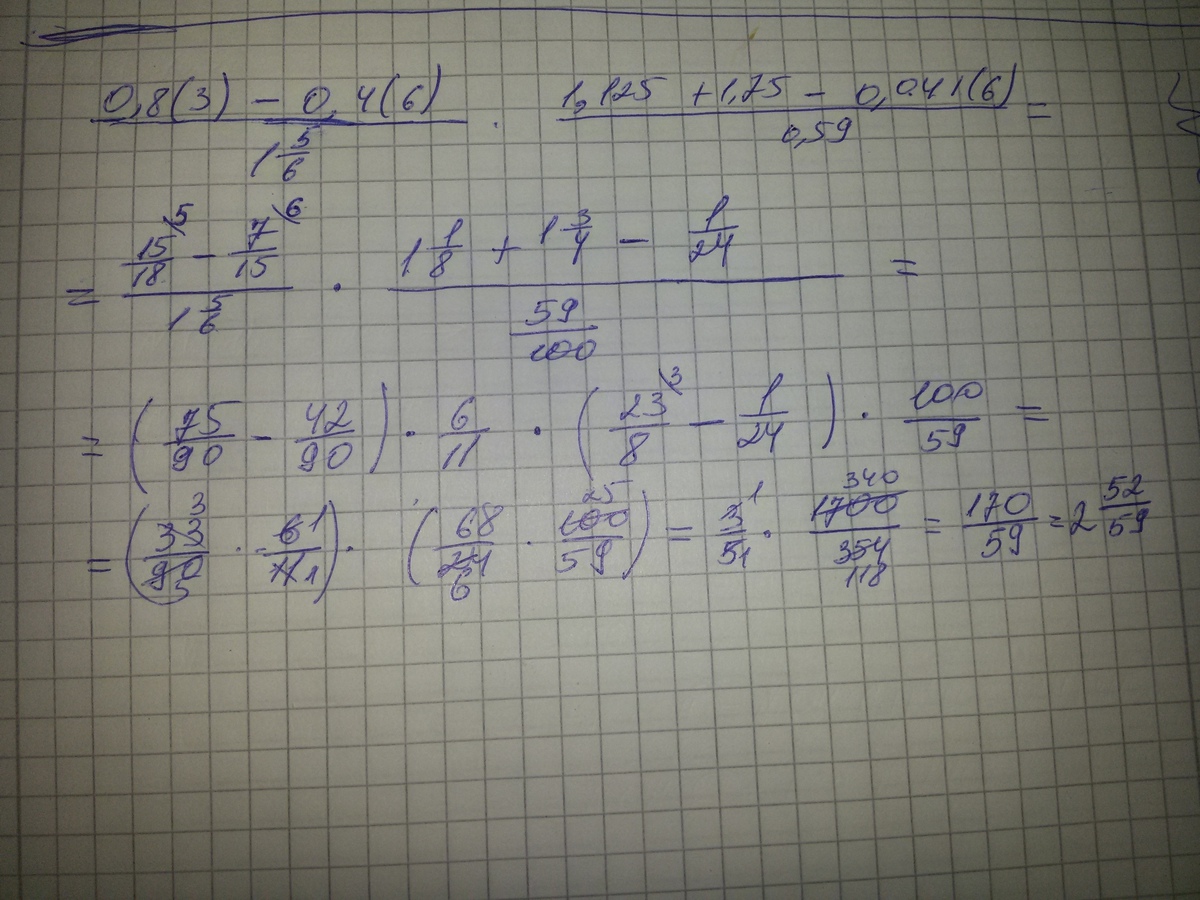 (0,8(3) − 0,4(6))/(1 5/6) · (1,125 + 1,75 − 0,041(6))/(0,59) =
= (15/18 \5 − 7/15 \6)/(1 5/6) · (1 1/8 + 1 3/4 − 1/24)/(59/100) =
= (75/90 − 42/90) · 6/11 · (23/8 \3 − 1/24) · 100/59 =
= (33/90 · 6/11) · (68/24 · 100/59) = 3/5 · 1700/354 = 170/59 = 2 52/59